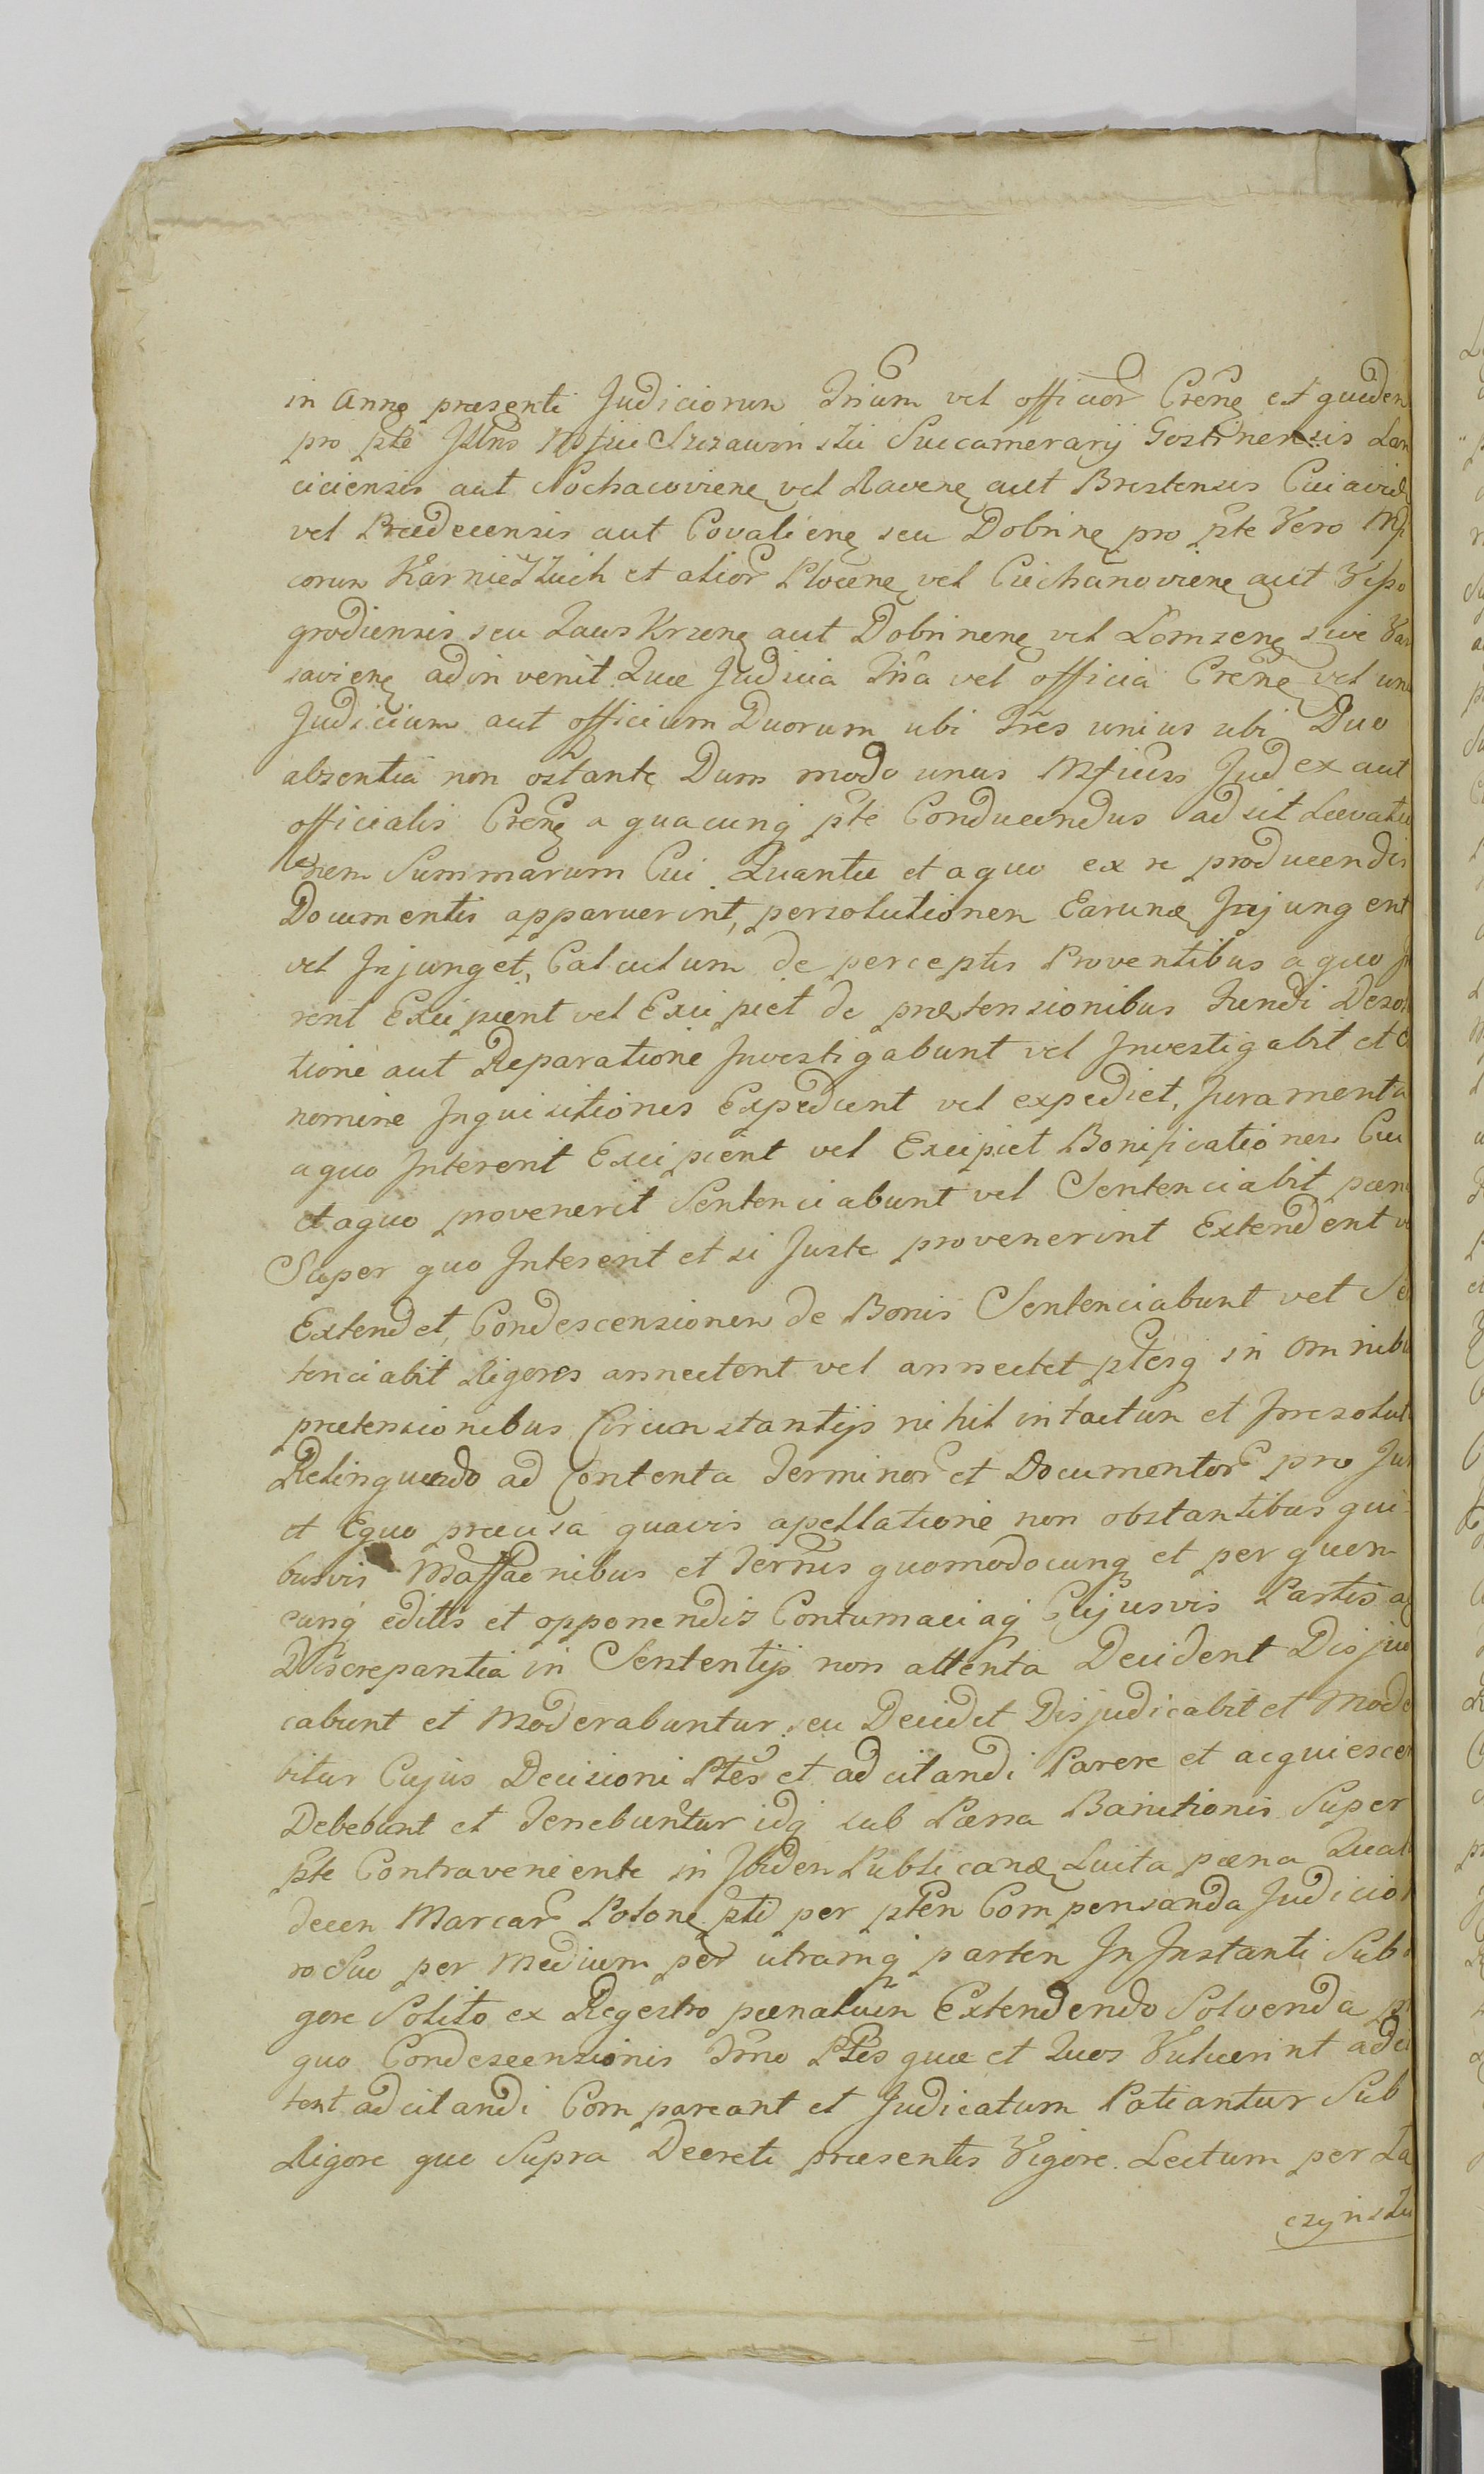 in Anno praesenti Judiciorum Trium vel officior Crene et quidem
pro pte Jllris Mfici Szczawinskii Succamerarij Gostinensis Lan
ciciensis aut Sochacoviene vel Ravene aut Brestensis Cuiavie
vel Praedecensis aut Covaliene seu Dobrine pro pte Vero Mfi
corum Karnieskich et alior Plocene vel Ciechanoviene aut Visso
grodiensis seu Zawskrzene aut Dobrinene vel Lomzene sive Var
saviene adinvenit Quae Judicia Tria vel officia Crene vel unu
Judicium aut officium Duorum ubi Tres unius ubi Duo
absentia non obstante Dum modo unus Mficus Judex aut
officialis Crene a quacunq pte Conducendus adsit Levatio
nem Summarum Cui Quantae et a quo ex re producendis
Documentis apparuerint, persolutionem Earunde Injungent
vel Injunget, Calculum de perceptis Proventibus a quo In
rerit Excipient vel Excipiet de praetensionibus Fundi Desol
tione aut Reparatione Investigabunt vel Investigabit et eo
nomine Inquisitiones Expedient vel expediet, Juramenta
a quo Intererit Excipient vel Excipiet Bonificationem Cui
et a quo provenerit Sentenciabunt vel Sentenciabit paen
Super quo Intererit et si Juste provenerint Extendent v
Extendet, Condescensionem de Bonis Sentenciabunt vel Sen
tenciabit Rigores annectent vel annectet ptesq in omnibu
praetensionibus Circumstantijs nihil intactum et Irresolut
Relinquendo ad Contenta Terminor et Documentor pro Jur
et Equo praecisa quavis apellatione non obstantibus qui
busvis Maffaonibus et Termis quomodocunq et per quem
cunq editis et opponendis Contumaciaq Cujusvis Partis ac
Discrepantia in Sententijs non attenta Decident Disjud
cabunt et Moderabuntur seu Decidet Disjudicabit et Mode
bitur Cujus Decisioni Ptes et adcitandi Parere et acquiescer
Debebunt et Tenebuntur idq sub Paena Banitionis Super
pte Contraveniente in Ibidem Publicande Luita paena Quat
decem Marcar Polone pti per ptem Compensanda Judicio
ro Suo per Medium per utramq partem In Instanti Sub
gore Solito ex Regestro paenaluin Extendendo Solvenda p
quo Condescensionis Tmo Ptes quae et Quos Voluerint adci
tent adcitandi Compareant et Judicatum Patiantur Sub
Rigore quo Supra Decreti praesentis Vigore. Lectum per La
czynski